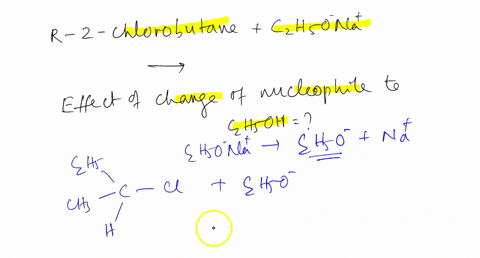 R-2-chlorobutane + C2H5O⁻Na⁺
⟶
Effect of change of nucleophile to
C2H5OH = ?
C2H5O⁻Na⁺ → C2H5O⁻ + Na⁺
C2H5
CH3 C - Cl + C2H5O⁻
H